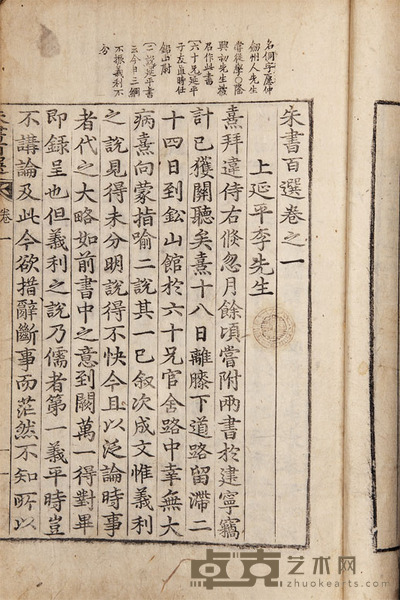 朱書百選卷之一
上延平李先生
名侗字愿仲
劒州人先生
嘗從學○隆
興初先生被
召作此書
六十兄延平
子友直時任
鉛山尉
二說延平書
云今日三綱
不振義利不
分
熹拜違侍右倐忽月餘頃嘗附兩書於建寧竊
計已獲關聽矣熹十八日離膝下道路留滯二
十四日到鈆山館於六十兄官舍路中幸無大
病熹向蒙指喻二說其一已叙次成文惟義利
之說見得未分明說得不快今且以泛論時事
者代之大略如前書中之意到闕萬一得對畢
即錄呈也但義利之說乃儒者第一義平時豈
不講論及此今欲措辭斷事而茫然不知所以
卷一
卓克艺术网
zhuokearts.com